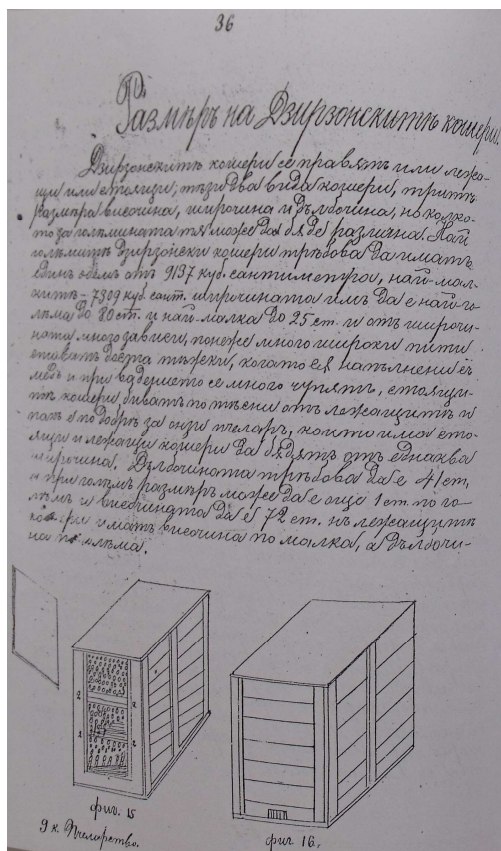 36
Размѣръ на Дзирзонскитѣ кошери.
Дзирзонскитѣ кошери се правятъ или лежа-
щи или стоящи, тѣзи два вида кошери, тритѣ
размѣра височина, широчина и дълбочина, но колко-
то за големината тя може да бѫде различна. Най
големитѣ Дзирзонски кошери трѣбова да иматъ
единъ обемъ отъ 9137 куб. сантиметра, най-мал-
китѣ - 7309 куб. сант. широчината имъ да е най-го-
лѣма до 80 ст. и най-малка до 25 ст. и отъ широчи-
ната много зависи, понеже много широки пити
ставатъ доста тѣжки, когато сѫ напълнени съ
медъ и при вадението се много чупятъ, стоящи-
тѣ кошери биватъ по тѣсни отъ лежащитѣ и
пакъ е по добрѣ за онзи пчеларь, който има сто-
ящи и лежащи кошери да бѫдятъ отъ еднаква
широчина. Дълбочината трѣбова да е 41 ст.
и при големъ размѣръ може да е още 1 ст. по го-
лѣмъ и височината да е 72 ст. нъ лежащитѣ
кошери иматъ височина по малка, а дълбочи-
на по голѣма.
2 2
1 2
фиг. 15
9 к. Пчеларство.
фиг 16.